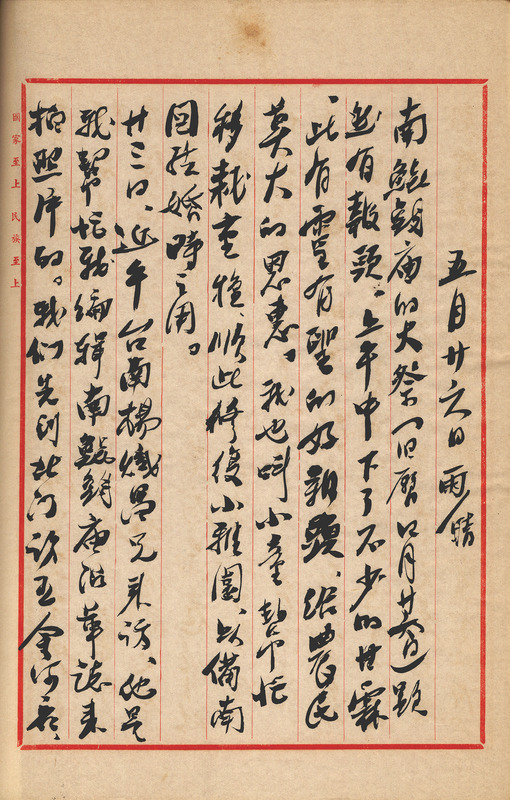 五月廿六日 雨、晴
南鯤鯓廟的大祭(旧曆四月廿六)還
有報頭。上午中下了不少的甘霖
、此有靈有聖的好報頭、給農民
莫大的恩惠。我也叫小童幫忙
移栽、順此修復小雅園、以備南
圖結婚時之用。
廿三日、近午台南楊熾昌兄來訪、他是
我幫忙我編輯南鯤鯓廟沿革誌來
拍照片的。我們先到北门訪王金河君、
國家至上 民族至上